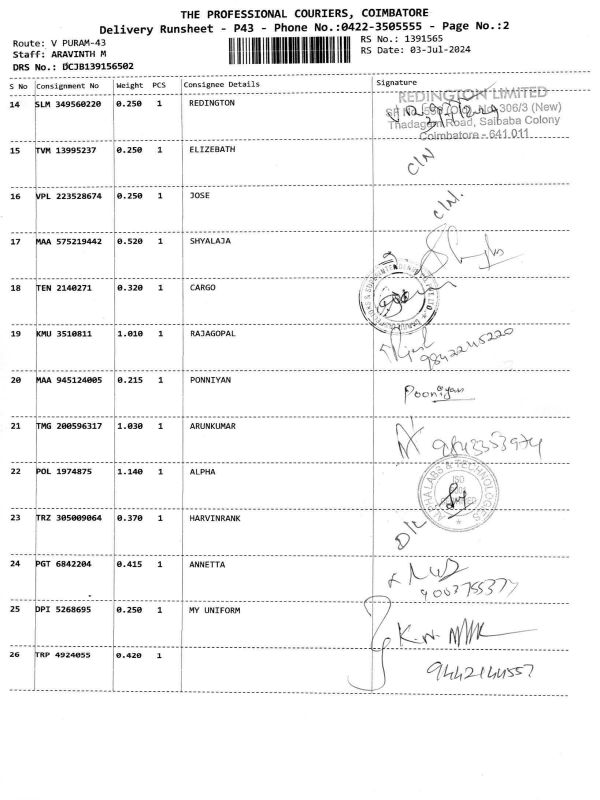 THE PROFESSIONAL COURIERS, COIMBATORE
Delivery Runsheet - P43 - Phone No.:0422-3505555 - Page No.:2
Route: V PURAM-43
Staff: ARAVINTH M
DRS No.: DCJB139156502
RS No.: 1391565
RS Date: 03-Jul-2024
S No Consignment No Weight PCS Consignee Details Signature
14 SLM 349560220 0.250 1 REDINGTON
REDINGTON LIMITED
306/3 (New)
Thadagam Road, Saibaba Colony
Coimbatore - 641 011
15 TVM 13995237 0.250 1 ELIZEBATH C/N
16 VPL 223528674 0.250 1 JOSE C/N.
17 MAA 575219442 0.520 1 SHYALAJA
18 TEN 2140271 0.320 1 CARGO
19 KMU 3510811 1.010 1 RAJAGOPAL 9842245220
20 MAA 945124005 0.215 1 PONNIYAN Pooniyan
21 TMG 200596317 1.030 1 ARUNKUMAR 9843353974
22 POL 1974875 1.140 1 ALPHA
ALPHA LABS & TECHNOLOGIES
ISO
23 TRZ 305009064 0.370 1 HARVINRANK D/L
24 PGT 6842204 0.415 1 ANNETTA 9003755377
25 DPI 5268695 0.250 1 MY UNIFORM K.N.
26 TRP 4924055 0.420 1 9442144557